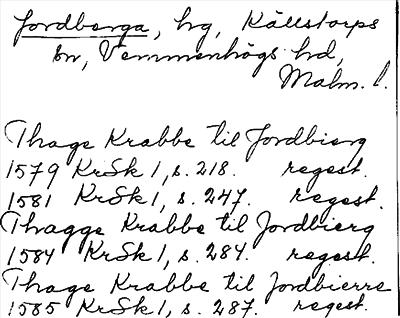 Jordberga, hg, Källstorps
sn, Vemmenhögs hd,
Malm. l.
Thage Krabbe til Jordbierg
1579 KrSk 1, s. 218. regest.
1581 KrSk 1, s. 247. regest.
Thagge Krabbe til Jordbierg
1584 KrSk 1, s. 284. regest.
Thage Krabbe til Jordbierre
1585 KrSk 1, s. 287. regest.